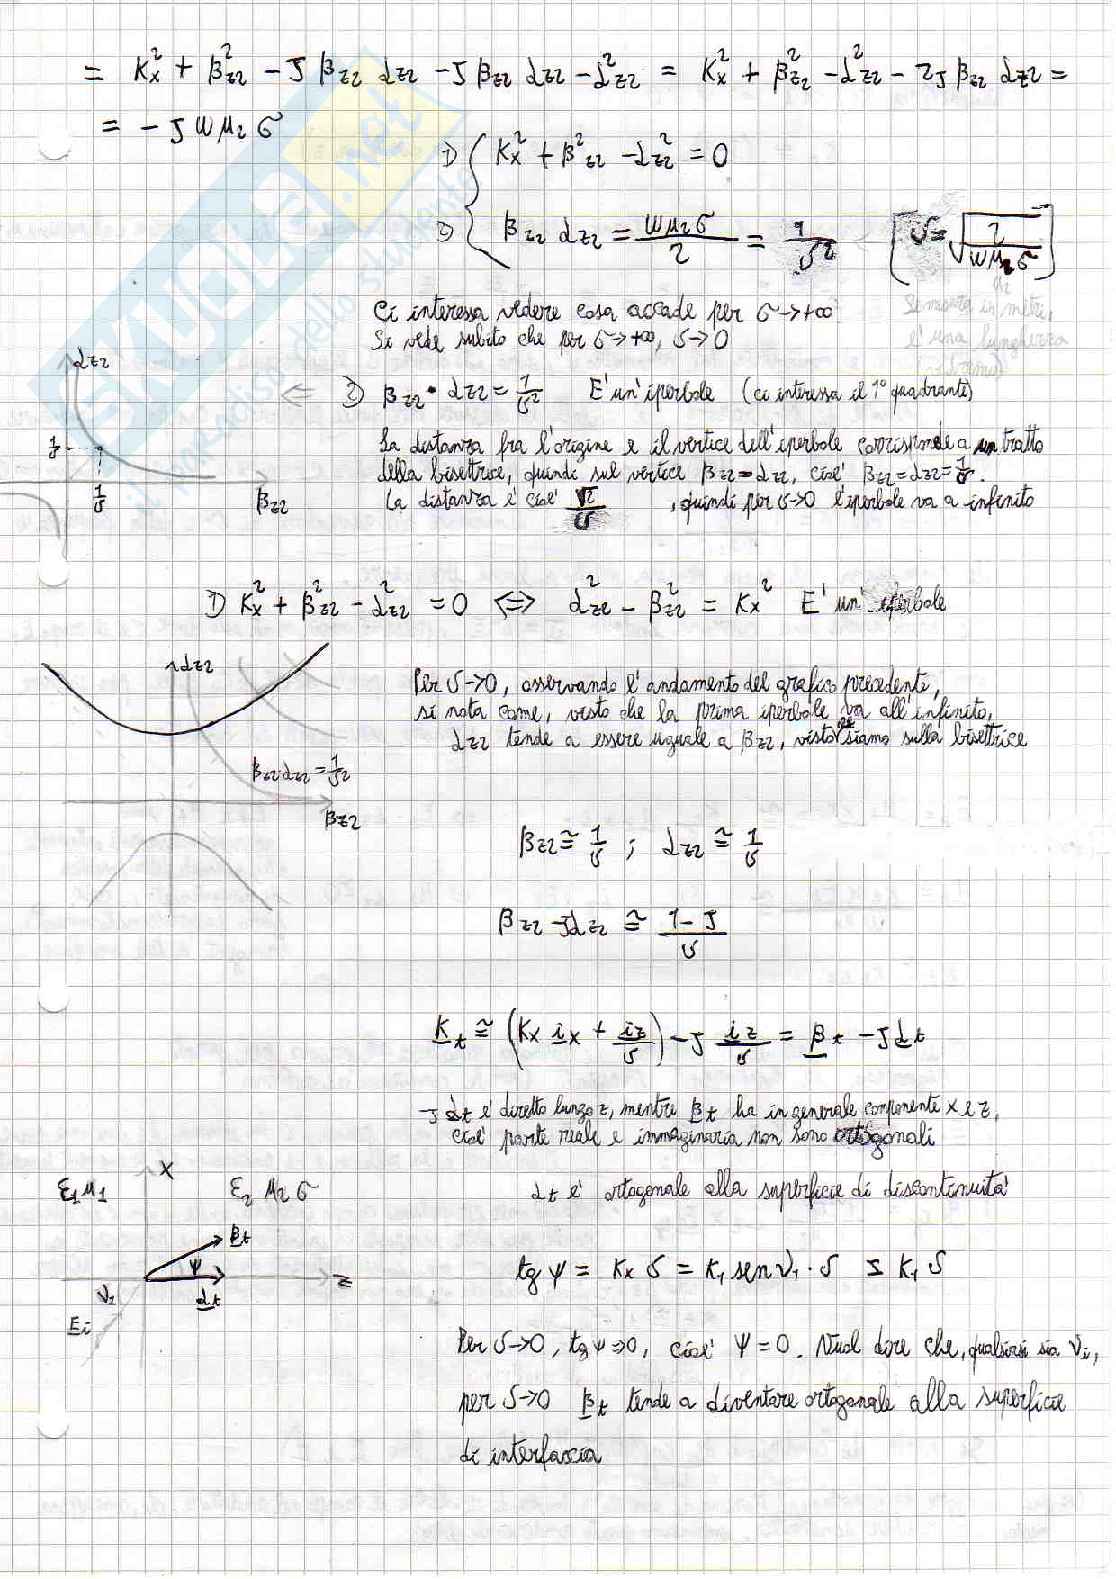 = Kx² + βz2² - J βz2 αz2 - J βz2 αz2 - αz2² = Kx² + βz2² - αz2² - 2J βz2 αz2 =
= - J ω μ2 σ
1) Kx² + βz2² - αz2² = 0
2) βz2 αz2 = ωμ2σ/2 = 1/δ² [δ = √(2/(ωμ2σ))]
Si misura in metri,
è una lunghezza
Ci interessa vedere cosa accade per σ → +∞
Si vede subito che per σ → +∞, δ → 0
αz2
⇐ 2) βz2 · αz2 = 1/δ² E' un'iperbole (ci interessa il 1° quadrante)
1/δ
1/δ
βz2
La distanza fra l'origine e il vertice dell'iperbole corrisponde a un tratto
della bisettrice, quindi sul vertice βz2 = αz2, cioè βz2 = αz2 = 1/δ.
La distanza è cioè √2/δ, quindi per δ→0 l'iperbole va a infinito
1) Kx² + βz2² - αz2² = 0 ⇔ αz2² - βz2² = Kx² E' un' iperbole
αz2
βz2·αz2 = 1/δ²
βz2
Per δ→0, osservando l'andamento del grafico precedente,
si nota come, visto che la prima iperbole va all'infinito,
αz2 tende a essere uguale a βz2, visto che siamo sulla bisettrice
βz2 ≅ 1/δ ; αz2 ≅ 1/δ
βz2 - Jαz2 ≅ (1 - J)/δ
Kt ≅ (Kx ix + iz/δ) - J iz/δ = βt - J αt
- J αt è diretto lungo z, mentre βt ha in generale componente x e z,
cioè parte reale e immaginaria non sono ortogonali
αt è ortogonale alla superficie di discontinuità
x
ε1 μ1
ε2 μ2 σ
βt
ψ
αt
z
ϑ1
Ei
tg ψ = Kx δ = K1 sen ϑ1 · δ ≤ K1 δ
Per δ→0, tg ψ → 0, cioè ψ = 0. Vuol dire che, qualsiasi sia ϑi,
per δ→0 βt tende a diventare ortogonale alla superficie
di interfaccia
SKUOLA.net